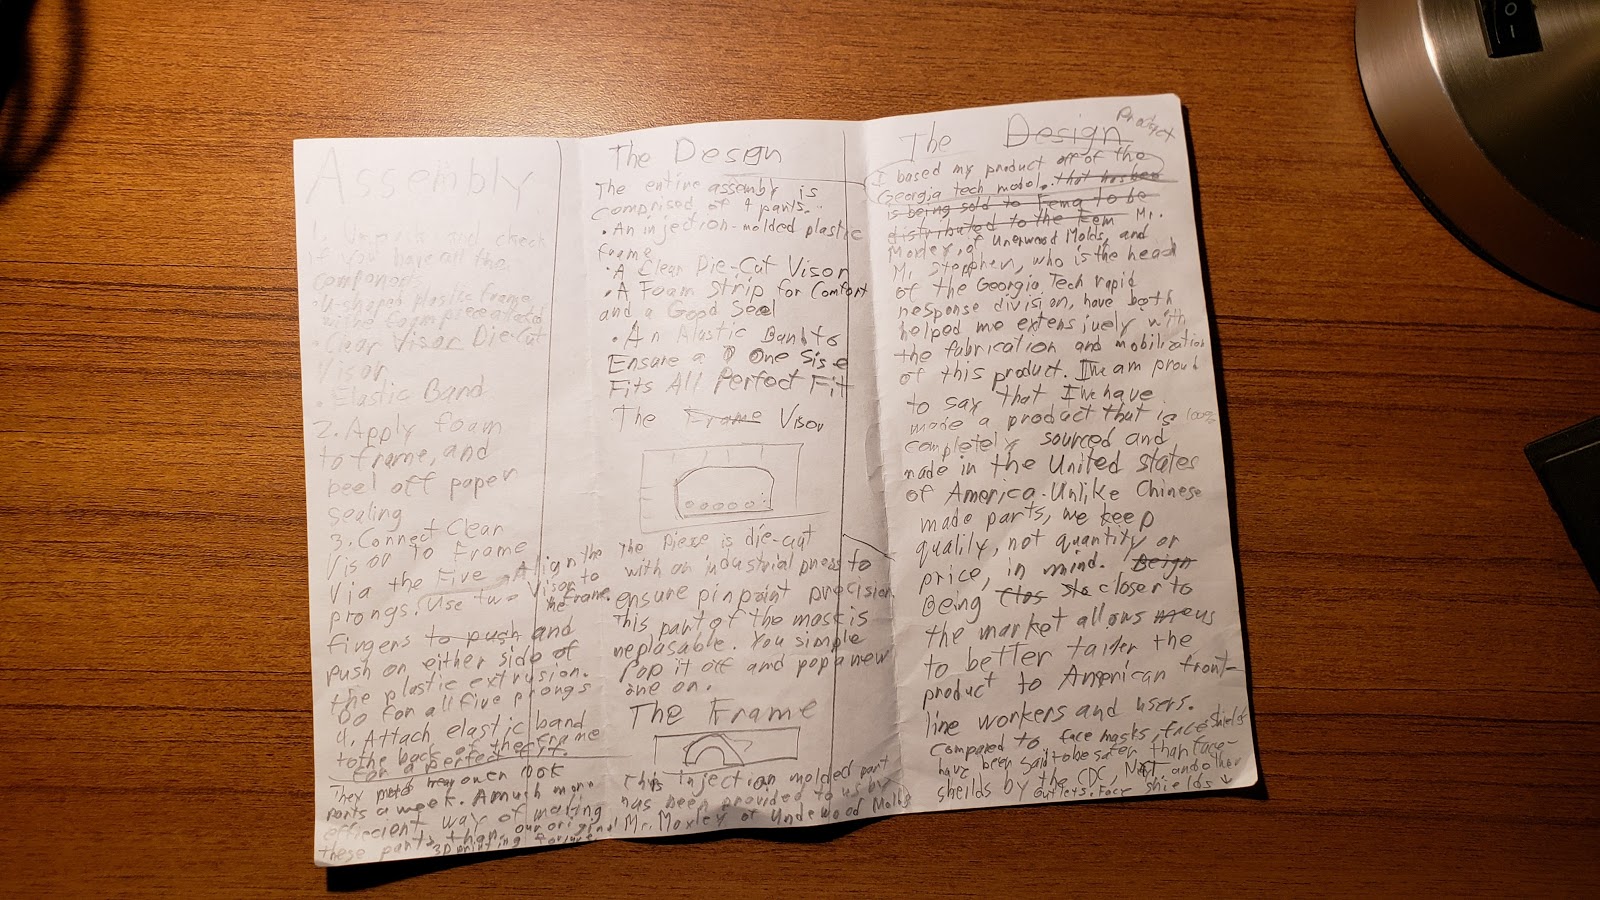 Assembly
1. Unpack and check
if you have all the
components
• U-shaped plastic frame
with foam piece attached
• Clear Visor Die-Cut
Visor
• Elastic Band
2. Apply foam
to frame, and
peel off paper
sealing
3. Connect Clear
Visor to Frame
Via the Five
prongs. Use two
Align the
Visor to
the frame.
fingers to push and
push on either side of
the plastic extrusion.
Do for all five prongs
4. Attach elastic band
to the back of the frame
for a perfect fit.
The Design
The entire assembly is
comprised of 4 parts.
• An injection-molded plastic
frame
• A Clear Die-Cut Visor
• A Foam Strip for Comfort
and a Good Seal
• An Alastic Band to
Ensure a One Sise
Fits All Perfect Fit
The Frame Visor
The Piexe is die-cut
with an industrial press to
ensure pinpoint precision.
This part of the mask is
replasable. You simple
Pop it off and pop a new
one on.
The Frame
This Injection molded part
has been provided to us by
Mr. Moxley of Undewood Molds
They over 800K
parts a week. A much more
efficient way of making
these parts than our original
3D printing
The Design Product
I based my product off of the
Georgia tech model. that has been
is being sold to Fema to be
distributed to the Fem Mr.
Moxley, of Unerwood Molds, and
Mr. Stepphen, who is the head
of the Georgia Tech rapid
response division, have both
helped me extensively with
the fabrication and mobilization
of this product. I'm am proud
to say that I'm have
made a product that is 100%
completely sourced and
made in the United States
of America. Unlike Chinese
made parts, we keep
quality, not quantity or
price, in mind. Beign
Being Clos closer to
the market allows me us
to better tailer the
product to American front-
line workers and users.
Compared to face masks, face shields
have been said to be safer than face-
sheilds by the CDC, and other
outleys. Face shields ↓